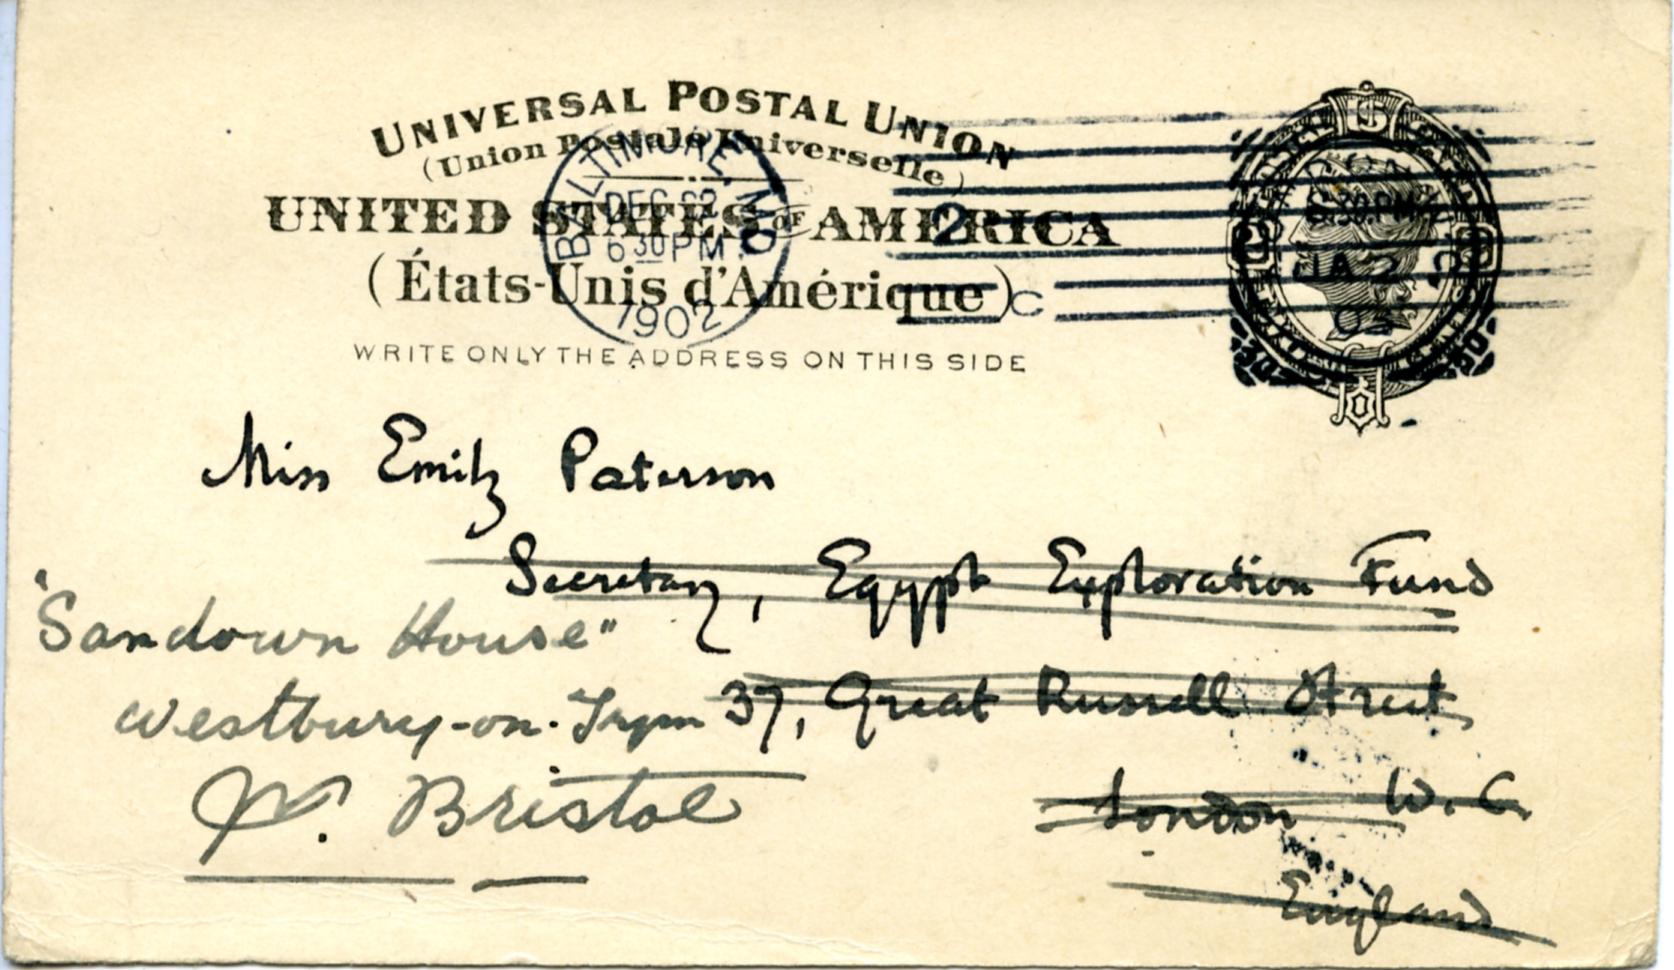 UNIVERSAL POSTAL UNION
(Union Postale Universelle)
UNITED STATES OF AMERICA
(États-Unis d'Amérique)
WRITE ONLY THE ADDRESS ON THIS SIDE
BALTIMORE, MD.
DEC 22
6 30 PM
1902
2
C
Miss Emily Paterson
Secretary, Egypt Exploration Fund
"Sandown House"
37, Great Russell Street
Westbury-on-Trym
London W.C.
Nr. Bristol
England